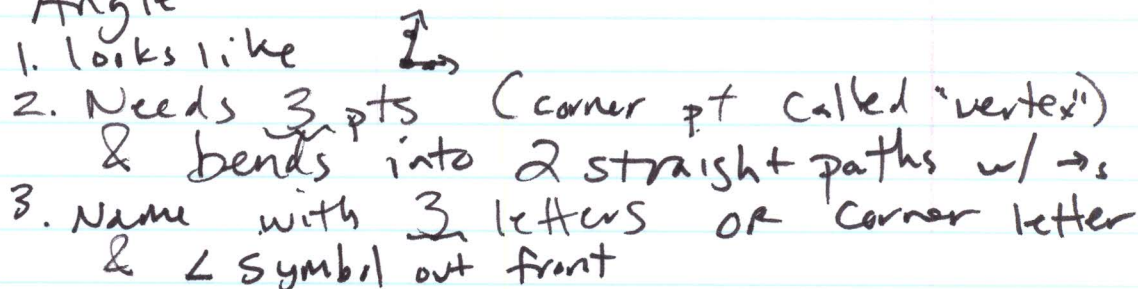 Angle
1. looks like
2. Needs 3 pts (corner pt called "vertex")
& bends into 2 straight paths w/ →s
3. Name with 3 letters OR corner letter
& ∠ symbol out front